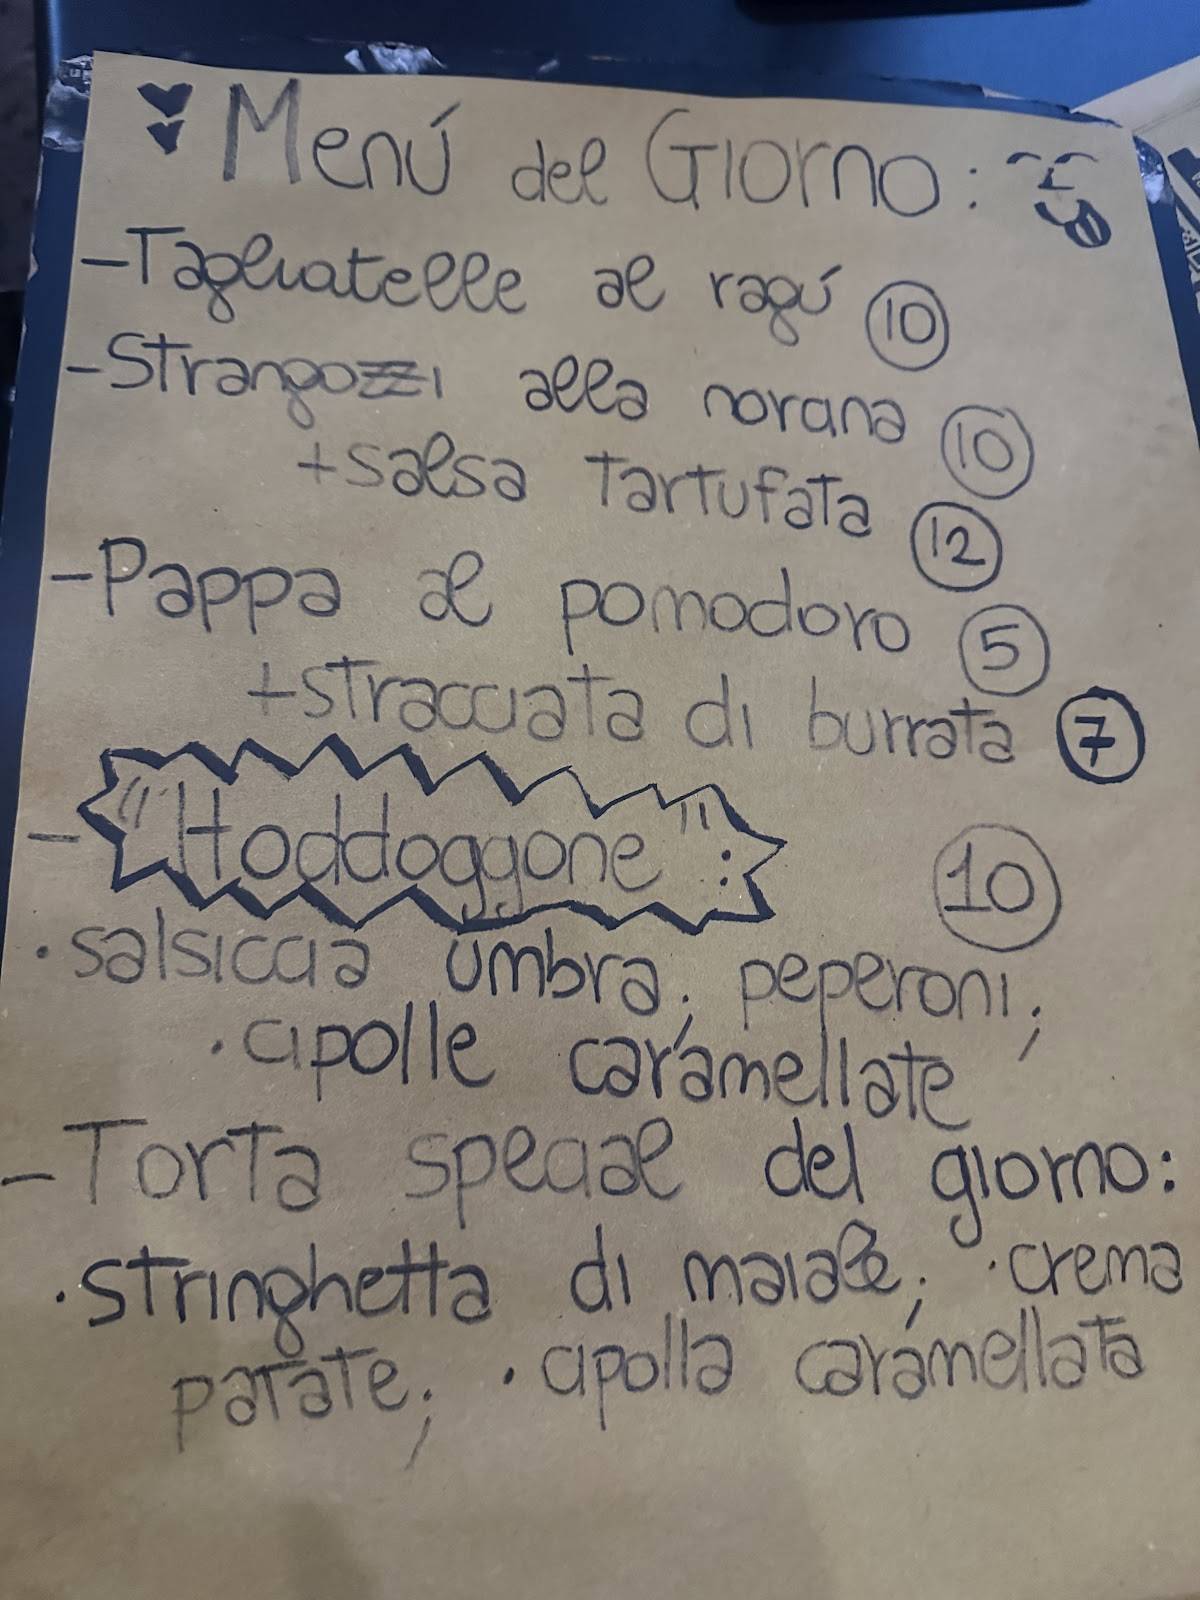 Menú del Giorno:
- Tagliatelle al ragú 10
- Strangozzi alla norana 10
+ salsa tartufata 12
- Pappa al pomodoro 5
+ stracciata di burrata 7
- "Hoddoggone": 10
· salsiccia umbra; peperoni;
· cipolle caramellate
- Torta speciale del giorno:
· stringhetta di maiale; · crema
patate; · cipolla caramellata